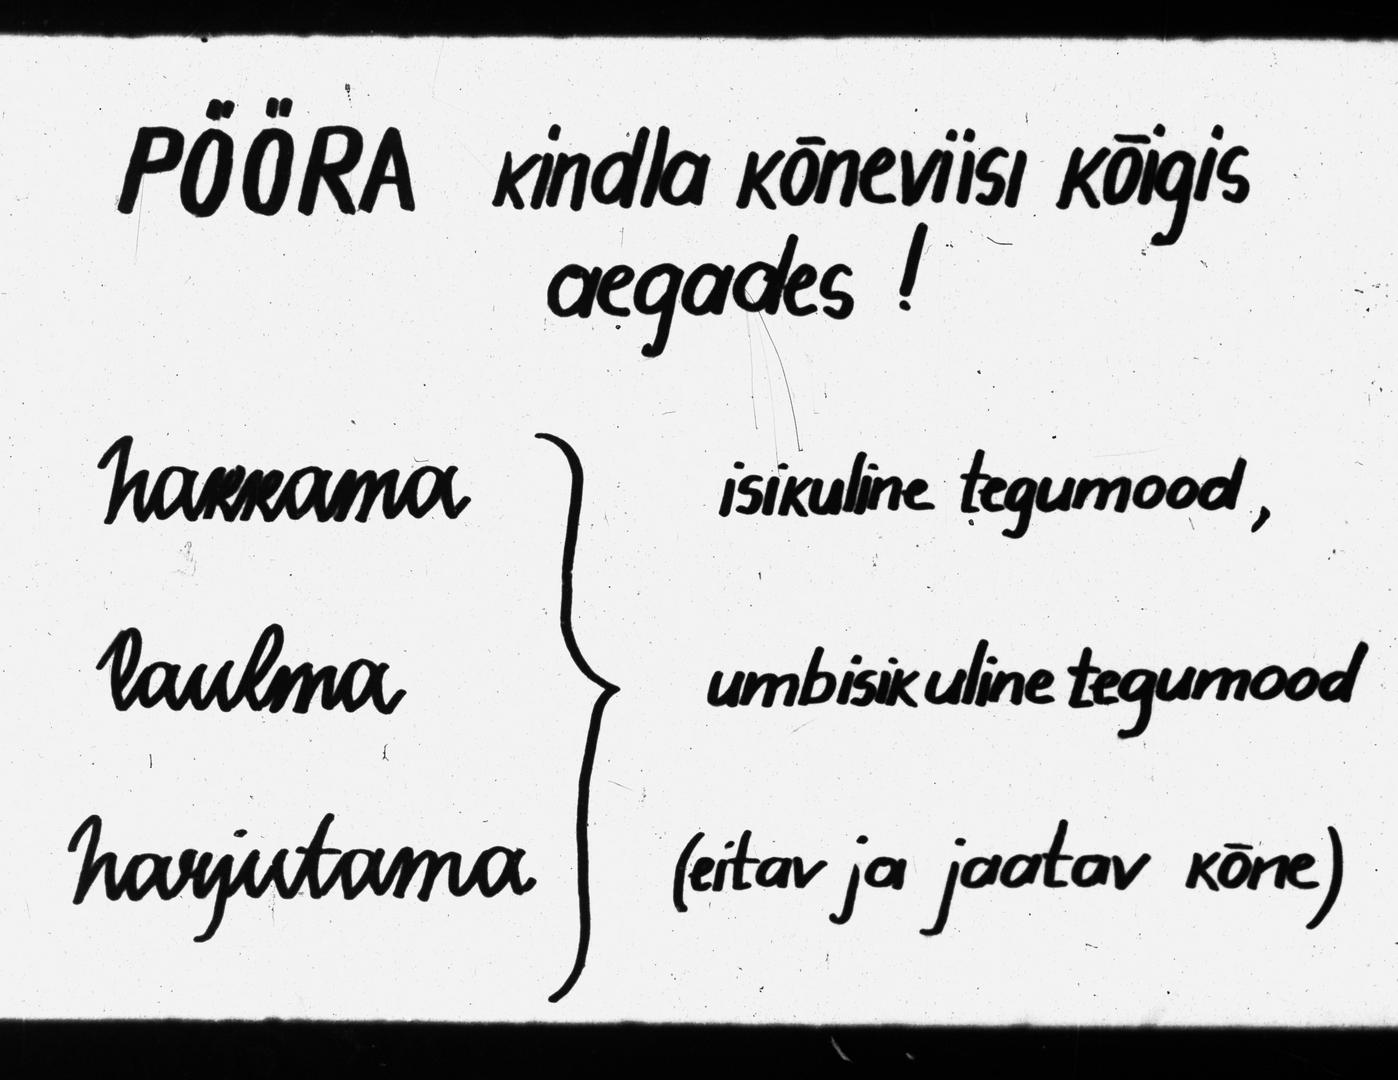 PÖÖRA kindla kõneviisi kõigis
aegades !
hakkama
laulma
harjutama
isikuline tegumood,
umbisikuline tegumood
(eitav ja jaatav kõne)